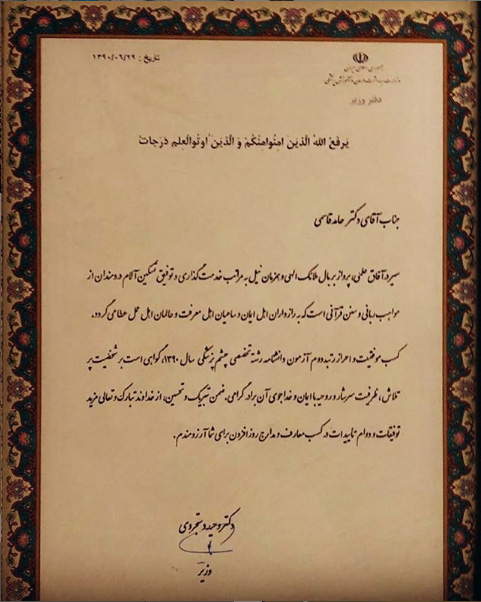 تاریخ : ۱۳۹۰/۰۶/۲۹
جمهوری اسلامی ایران
وزارت بهداشت، درمان و آموزش پزشکی
دفتر وزیر
یَرفَعُ اللهُ الَّذینَ امِنُوامِنکُم وَ الَّذینَ اُوتُوالعِلم دَرَجات
جناب آقای دکتر حامد قاسمی
سیر در آفاق علمی، پرواز بر بال ملائک الهی و همزمان نیل به مراتب خدمت گذاری و توفیق تسکین آلام دردمندان از
مواهب ربانی و سنن قرآنی است که به رازداران اهل ایمان و ساعیان اهل معرفت و حالمان اهل عمل عطا می گردد.
کسب موفقیت و احراز رتبه دوم آزمون دانشنامه رشته تخصصی چشم پزشکی سال ۱۳۹۰، گواهی است بر شخصیت پر
تلاش، ظرفیت سرشار و روحیه با ایمان و خداجوی آن برادر گرامی. ضمن تبریک و تحسین، از خداوند تبارک و تعالی مزید
توفیقات و دوام تاییدات در کسب معارف و مدارج روزافزون برای شما آرزومندم.
دکتر وحید دستجردی
وزیر